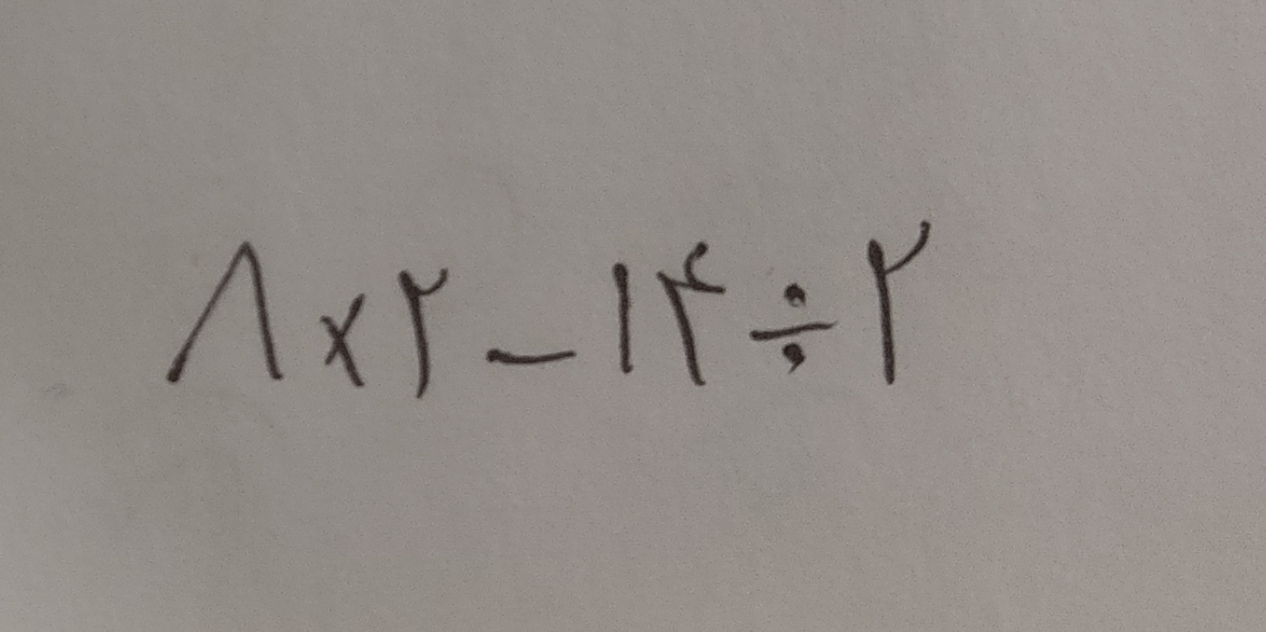 ۸ × ۲ - ۱۴ ÷ ۲